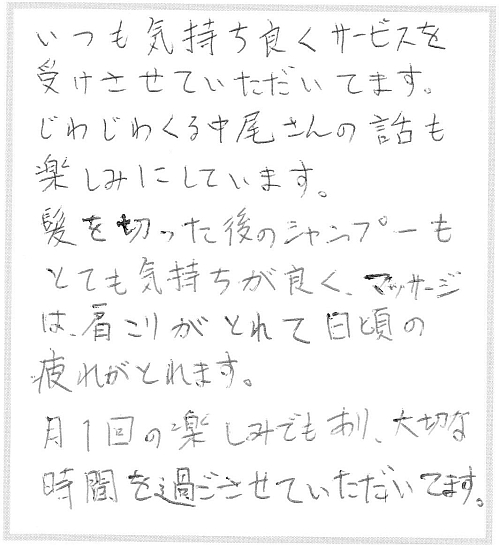 いつも気持ち良くサービスを
受けさせていただいてます。
じわじわくる中尾さんの話も
楽しみにしています。
髪を切った後のシャンプーも
とても気持ちが良く、マッサージ
は、肩こりがとれて日頃の
疲れがとれます。
月1回の楽しみでもあり、大切な
時間を過ごさせていただいてます。